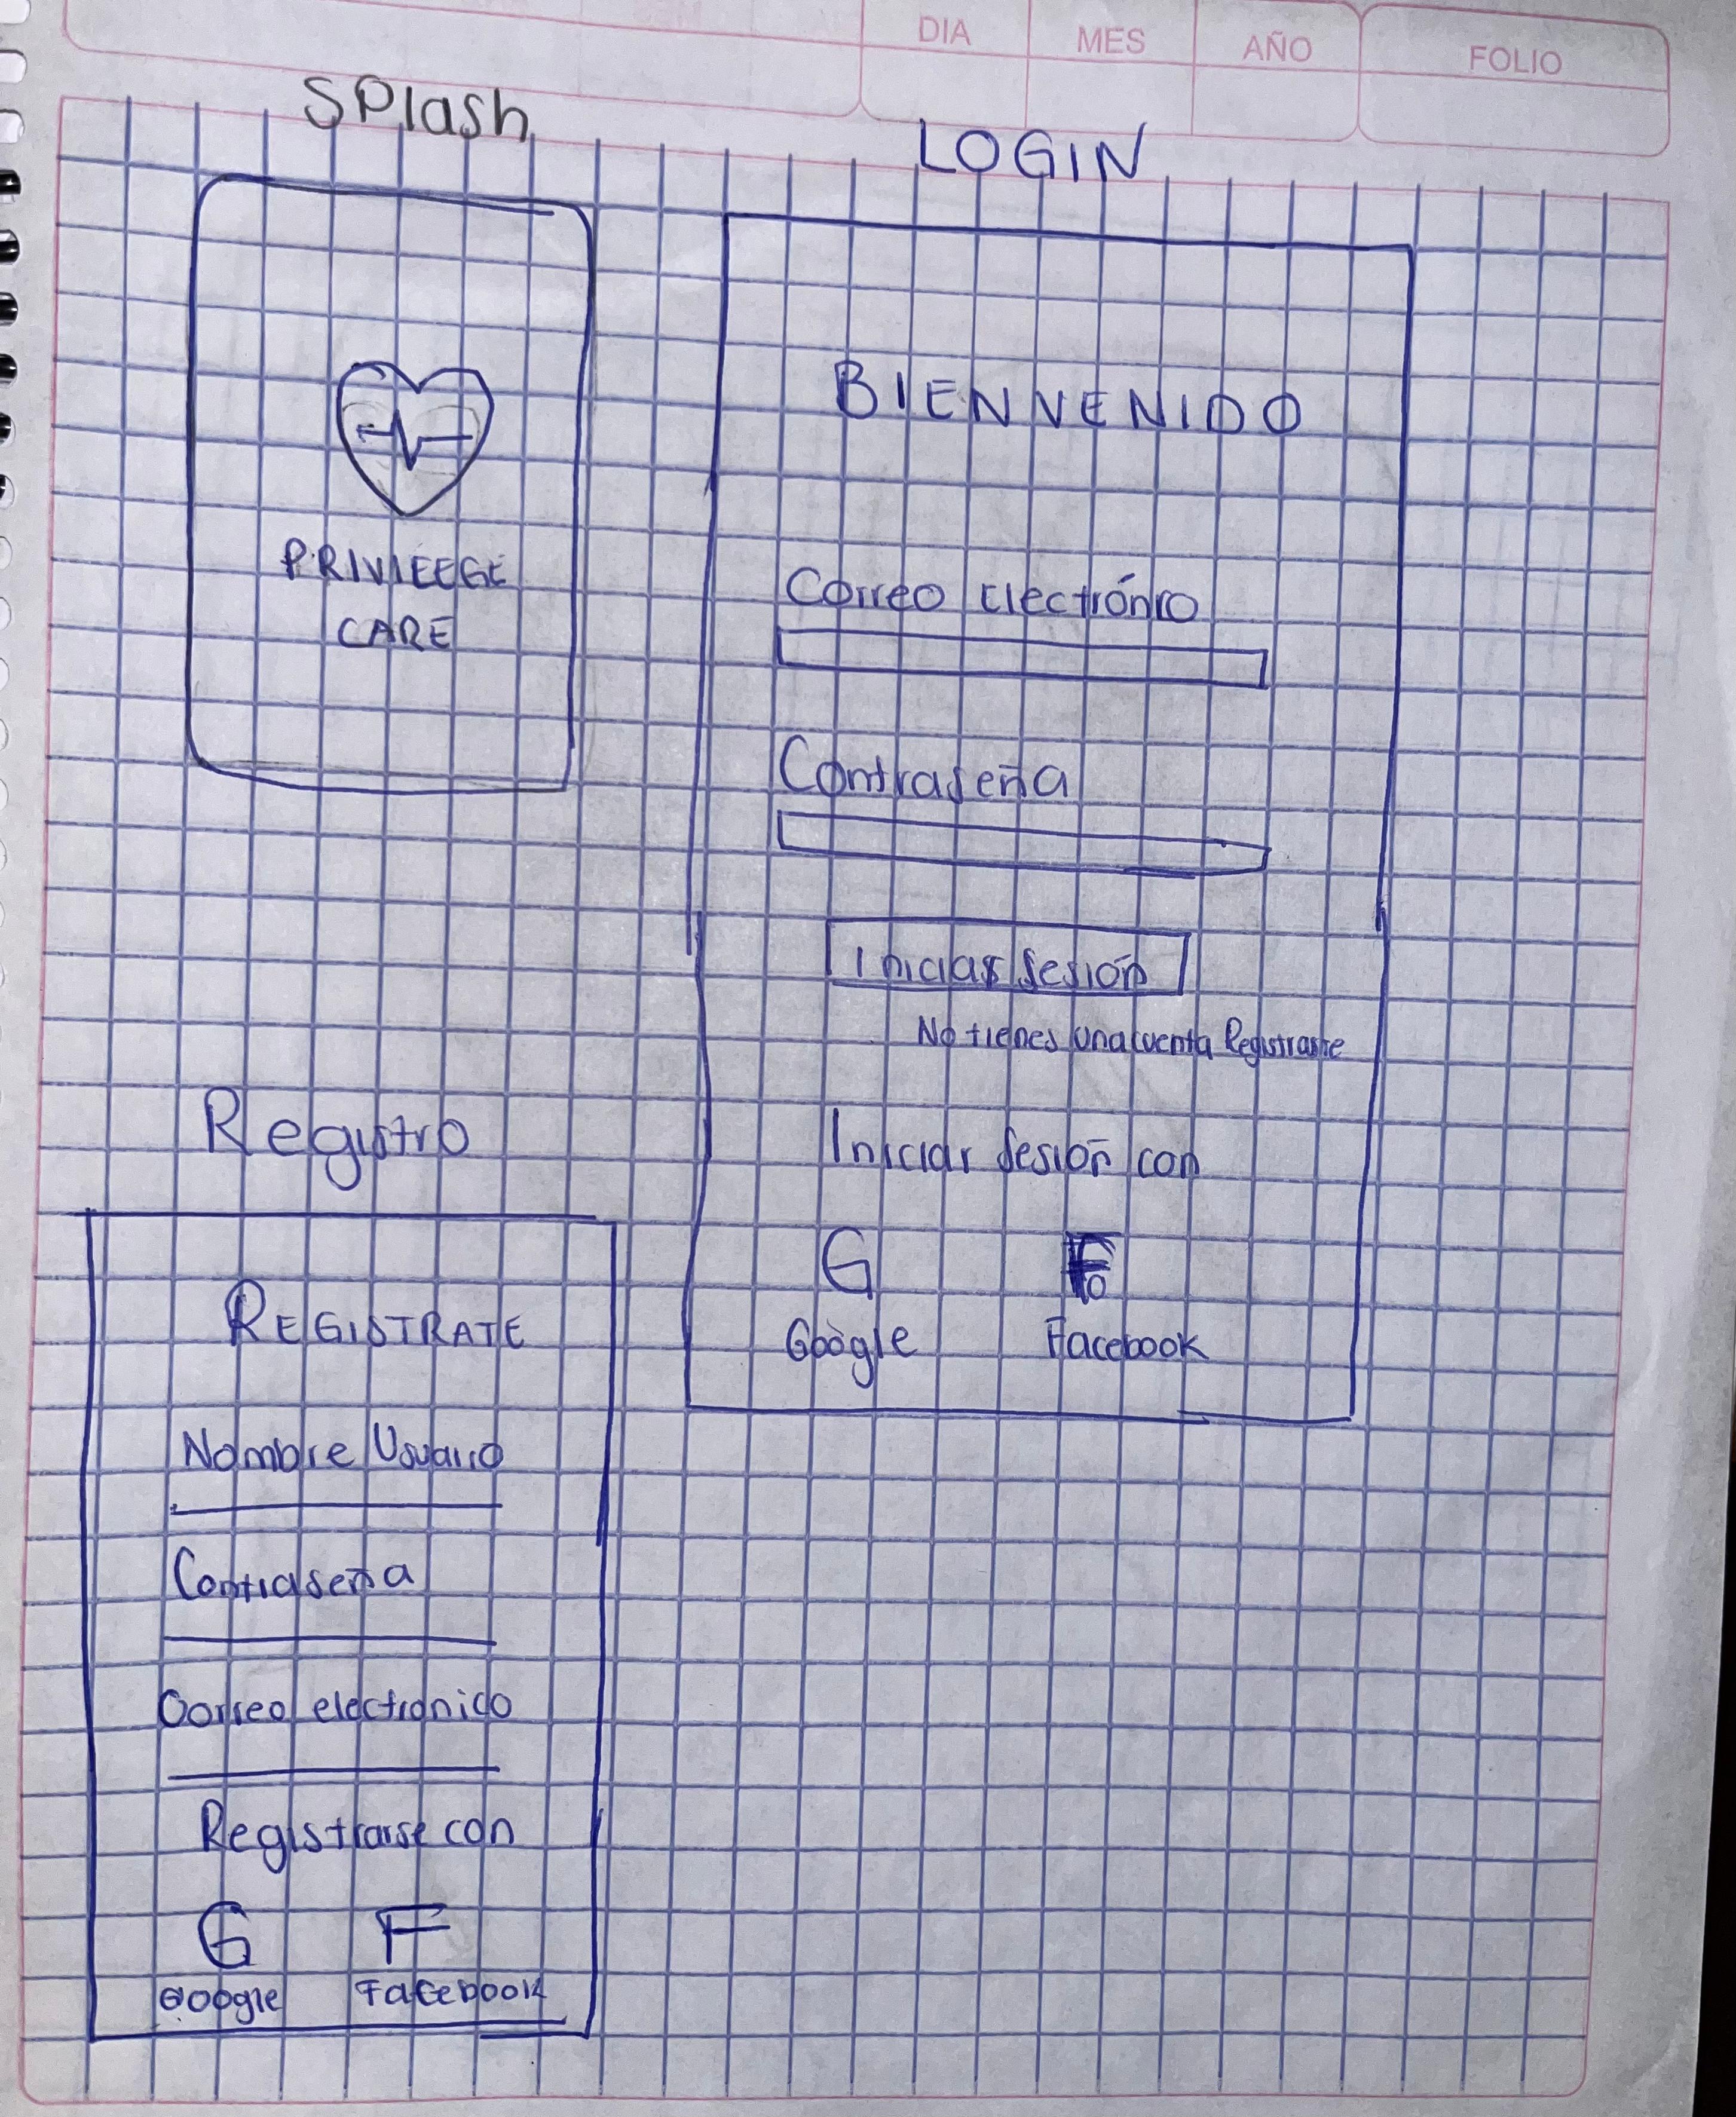 DIA
MES
AÑO
FOLIO
SPlash
PRIVIEEGE
CARE
LOGIN
BIENVENIDO
Correo electrónico
Contraseña
Iniciar sesión
No tienes una cuenta Registrarte
Iniciar sesión con
G
F
Google
Facebook
Registro
REGISTRATE
Nombre Usuario
Contraseña
Correo electronico
Registrarse con
G
F
Google
Facebook